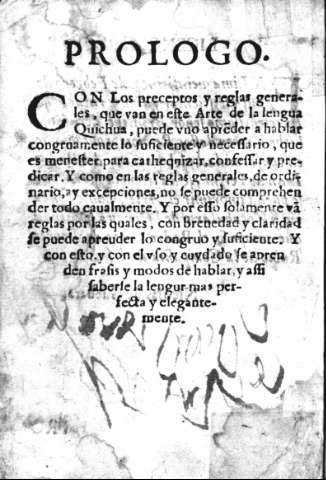 PROLOGO.
CON Los preceptos y reglas genera-
les, que van en esta Arte de la lengua
Quichua, puede vno aprẽder a hablar
congruamente lo suficiente y necessario, que
es menester para cathequizar, confessar y pre-
dicar. Y como en las reglas generales, de ordi-
nario, ay excepciones, no se puede comprehen
der todo caualmente. Y por esso solamente vã
reglas por las quales, con breuedad y claridad
se puede aprender lo congruo y suficiente. Y
con esto, y con el vso, y cuydado se apren
den frasis y modos de hablar, y assi
saberse la lengua mas per-
fecta y elegante-
mente.